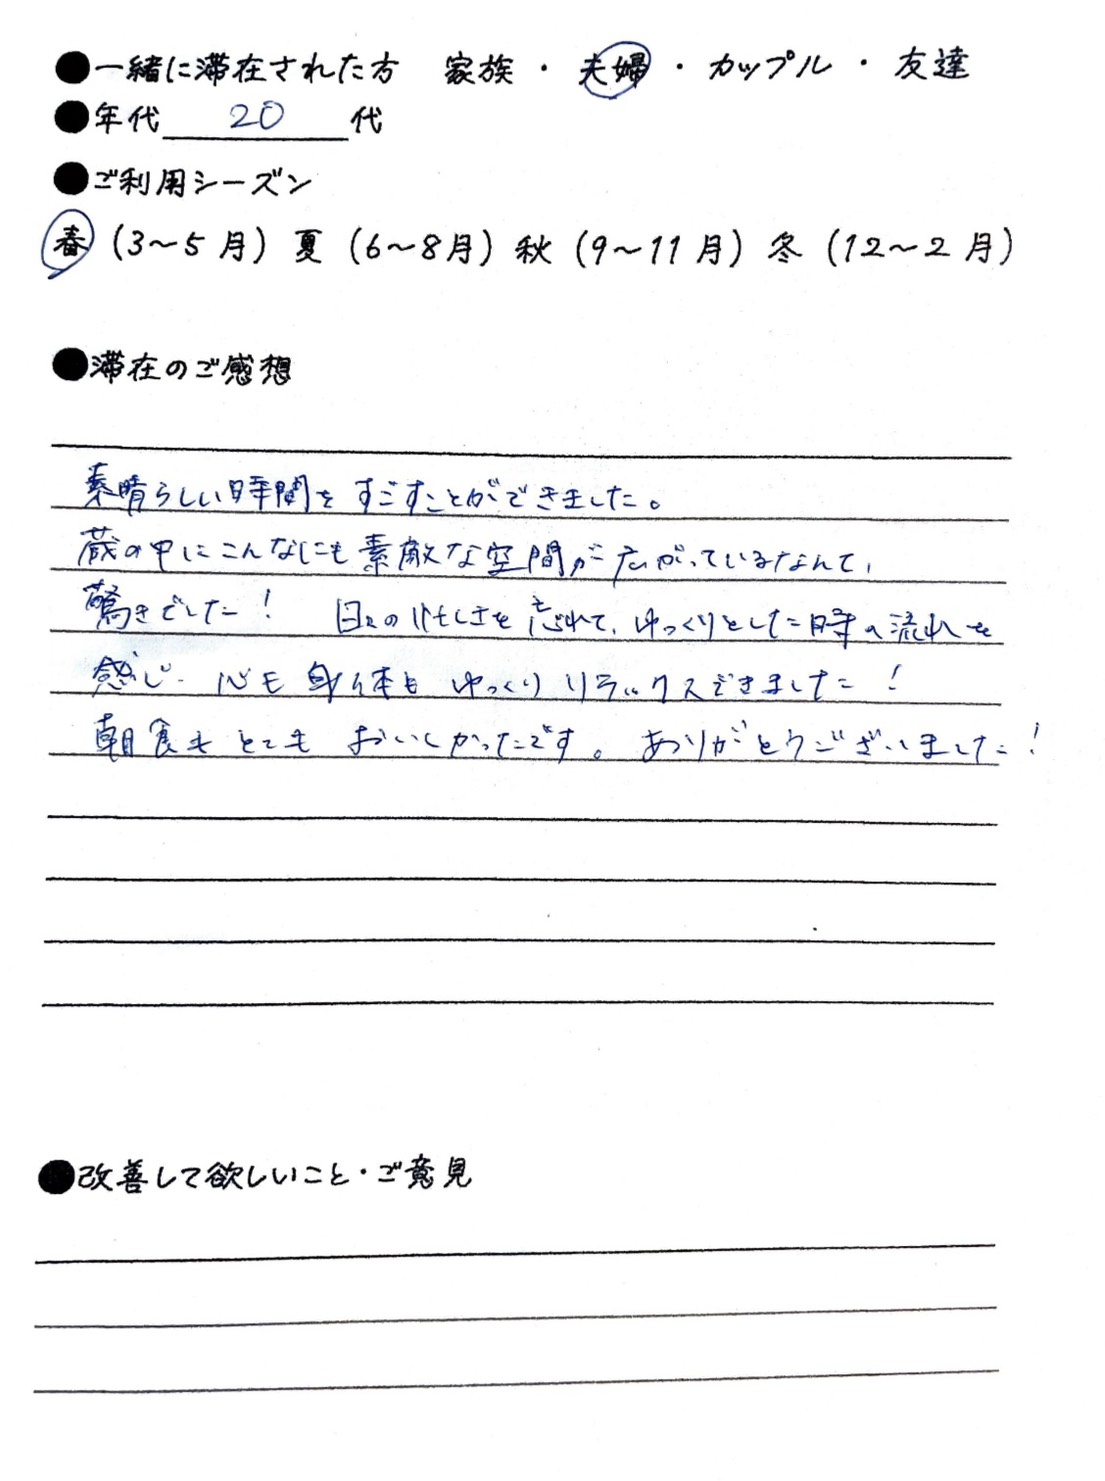 ●一緒に滞在された方 家族・夫婦・カップル・友達
●年代 20 代
●ご利用シーズン
春(3～5月)夏(6～8月)秋(9～11月)冬(12～2月)
●滞在のご感想
素晴らしい時間をすごすことができました。
蔵の中にこんなにも素敵な空間が広がっているなんて、
驚きでした! 日々の忙しさを忘れて、ゆっくりとした時の流れを
感じ、心も身体もゆっくりリラックスできました!
朝食もとてもおいしかったです。ありがとうございました!
●改善して欲しいこと・ご意見